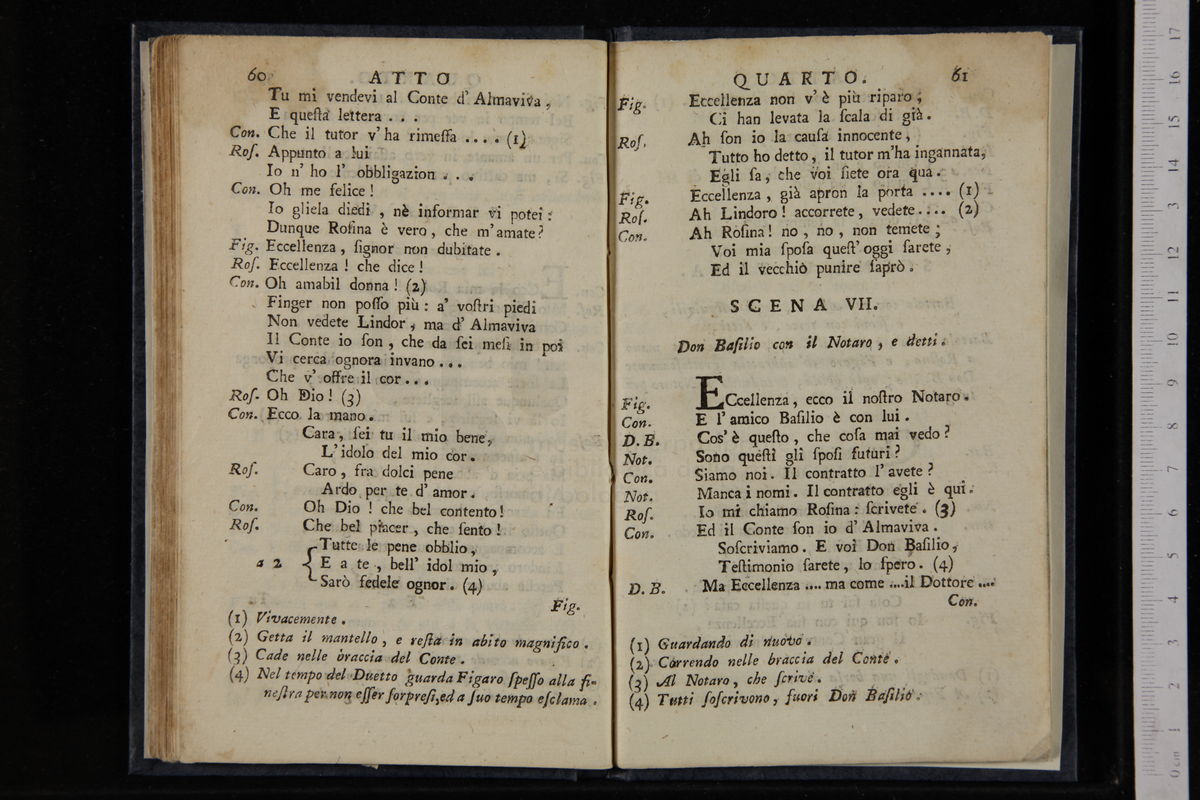 60 ATTO
Tu mi vendevi al Conte d' Almaviva,
E queſta lettera . . .
Con. Che il tutor v'ha rimeſſa .... (1)
Roſ. Appunto a lui
Io n' ho l' obbligazion . . .
Con. Oh me felice!
Io gliela diedi, nè informar vi potei:
Dunque Roſina è vero, che m'amate?
Fig. Eccellenza, ſignor non dubitate.
Roſ. Eccellenza! che dice!
Con. Oh amabil donna! (2)
Finger non poſſo più: a' voſtri piedi
Non vedete Lindor, ma d' Almaviva
Il Conte io ſon, che da ſei meſi in poi
Vi cerca ognora invano...
Che v' offre il cor...
Roſ. Oh Dio! (3)
Con. Ecco la mano.
Cara, ſei tu il mio bene,
L' idolo del mio cor.
Roſ. Caro, fra dolci pene
Ardo per te d' amor.
Con. Oh Dio! che bel contento!
Roſ. Che bel piacer, che ſento!
Tutte le pene obblio,
a 2 { E a te, bell' idol mio,
Sarò fedele ognor. (4)
Fig.
(1) Vivacemente.
(2) Getta il mantello, e reſta in abito magnifico.
(3) Cade nelle braccia del Conte.
(4) Nel tempo del Duetto guarda Figaro ſpeſſo alla fi-
neſtra per non eſſer ſorpreſi, ed a ſuo tempo eſclama.
QUARTO. 61
Fig. Eccellenza non v'è più riparo;
Ci han levata la ſcala di già.
Roſ. Ah ſon io la cauſa innocente,
Tutto ho detto, il tutor m'ha ingannata,
Egli ſa, che voi ſiete ora qua.
Fig. Eccellenza, già apron la porta .... (1)
Roſ. Ah Lindoro! accorrete, vedete.... (2)
Con. Ah Roſina! no, no, non temete;
Voi mia ſpoſa queſt' oggi ſarete,
Ed il vecchio punire ſaprò.
SCENA VII.
Don Baſilio con il Notaro, e detti.
Fig. ECcellenza, ecco il noſtro Notaro.
Con. E l' amico Baſilio è con lui.
D. B. Cos' è queſto, che coſa mai vedo?
Not. Sono queſti gli ſpoſi futuri?
Con. Siamo noi. Il contratto l' avete?
Not. Manca i nomi. Il contratto egli è qui.
Roſ. Io mi chiamo Roſina: ſcrivete. (3)
Con. Ed il Conte ſon io d' Almaviva.
Soſcriviamo. E voi Don Baſilio,
Teſtimonio ſarete, lo ſpero. (4)
D. B. Ma Eccellenza .... ma come .... il Dottore ....
Con.
(1) Guardando di nuovo.
(2) Correndo nelle braccia del Conte.
(3) Al Notaro, che ſcrive.
(4) Tutti ſoſcrivono, fuori Don Baſilio.
0 cm 1 2 3 4 5 6 7 8 9 10 11 12 13 14 15 16 17